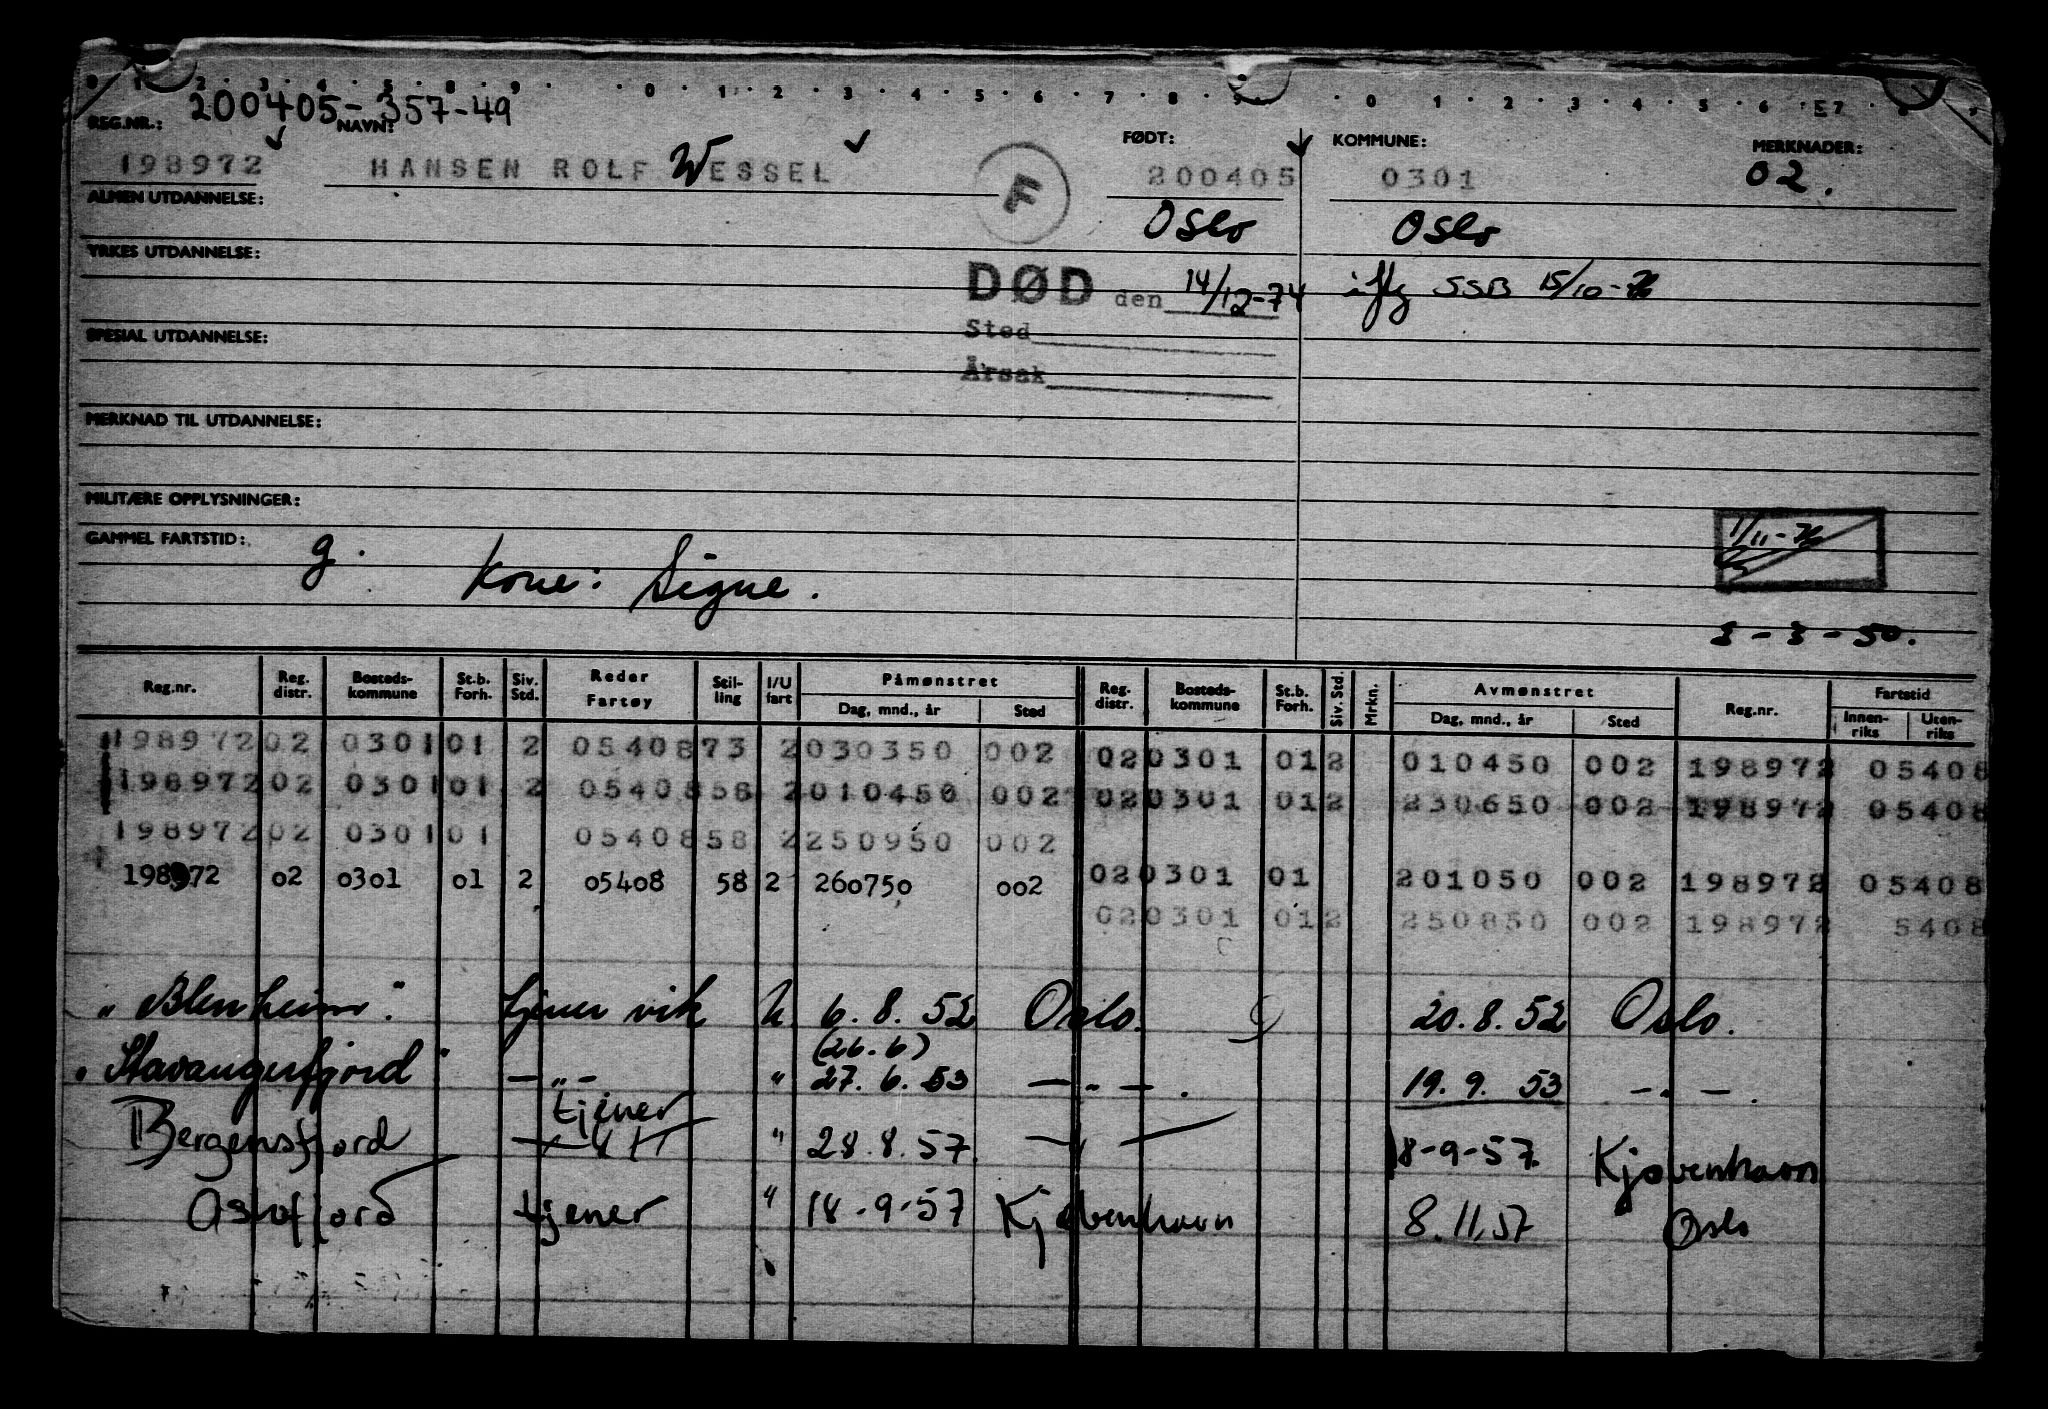 0 1 2 · 3 · 4 · 5 · 8 · 9 · · 0 · 1 · 2 · 3 · 4 · 5 · 6 · 7 · 8 · 9 · 0 · 1 · 2 · 3 · 4 · 5 · 6 · 7 · 8 · 9
200405-357-49
REG.NR.: NAVN: FØDT: KOMMUNE: MERKNADER:
198972 HANSEN ROLF WESSEL F 200405 0301 02.
ALMEN UTDANNELSE: Oslo Oslo
YRKES UTDANNELSE:
DØD den 14/12-74 iflg SSB 15/10-76
Sted
SPESIAL UTDANNELSE:
Årsak
MERKNAD TIL UTDANNELSE:
MILITÆRE OPPLYSNINGER:
1/11-76
GAMMEL FARTSTID: g. Kone: Signe.
3-3-50.
Reg.nr. Reg. distr. Bosteds-kommune St.b. Forh. Siv. Std. Reder Fartøy Stil-ling I/U fart Påmønstret Dag, mnd., år Sted Reg. distr. Bosteds-kommune St.b. Forh. Siv. Std. Mrkn. Avmønstret Dag, mnd., år Sted Reg.nr. Fartstid Innen-riks Uten-riks
198972 02 0301 01 2 05408 73 2 030350 002 02 0301 01 2 010450 002 198972 05408
198972 02 0301 01 2 05408 58 2 010450 002 02 0301 01 2 230650 002 198972 05408
198972 02 0301 01 05408 58 2 250950 002
198972 02 0301 01 2 05408 58 2 260750 002 02 0301 01 201050 002 198972 05408
02 0301 01 2 250850 002 198972 5408
"Blenheim". tjener vik U 6.8.52 Oslo. 20.8.52 Oslo.
(26.6)
"Stavangerfjord" —"— " 27.6.53 —"—. 19.9.53 —"—.
tjener
Bergensfjord " 28.8.57. —"— 18-9-57. Kjøvenhavn
Oslofjord tjener " 18-9-57 Kjøbenhavn 8.11.57 Oslo